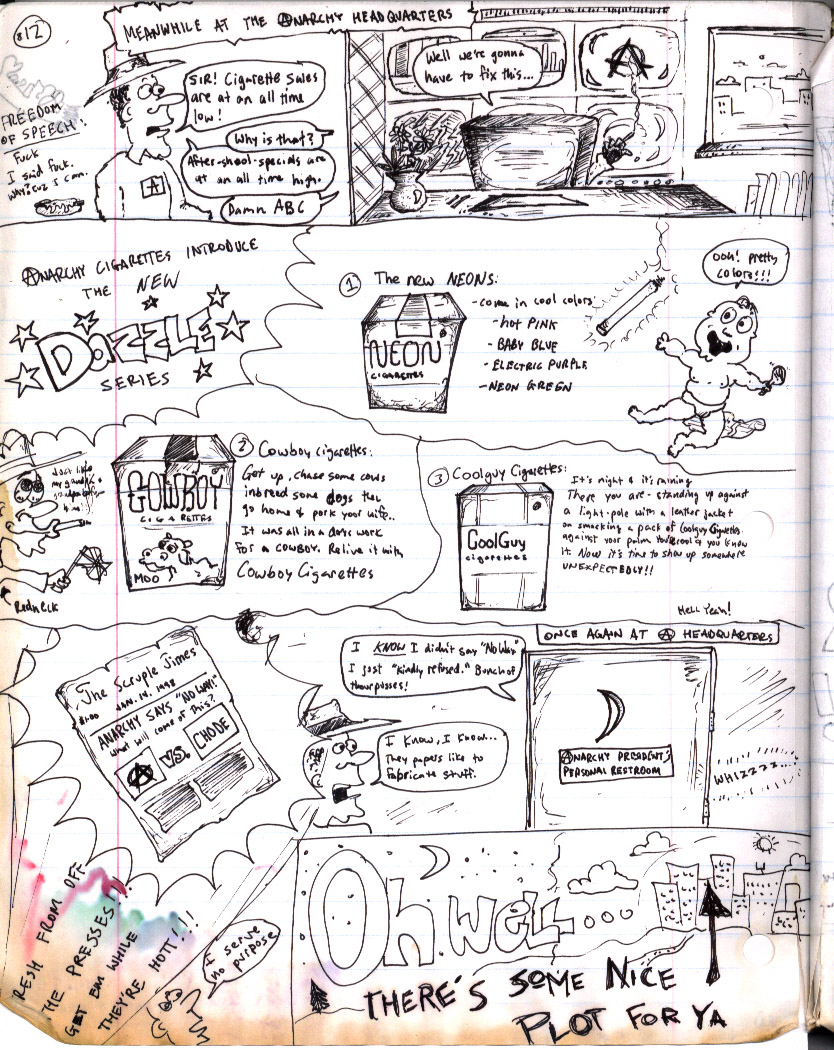 312
MEANWHILE AT THE ANARCHY HEADQUARTERS
FREEDOM
OF SPEECH:
Fuck
I said fuck.
WHY? CUZ I CAN.
SIR! Cigarette sales
are at an all time
low!
Why is that?
After-shool-specials are
at an all time high.
Damn ABC
A
Well we're gonna
have to fix this...
A
ANARCHY CIGARETTES INTRODUCE
THE NEW
DAZZLE
SERIES
1 The new NEONS:
NEON
CIGARETTES
-come in cool colors:
-hot PINK
-BABY BLUE
-ELECTRIC PURPLE
-NEON GREEN
OOH! pretty
colors!!!
Redneck
COWBOY
CIGARETTES
MOO
2 Cowboy cigarettes:
Get up, chase some cows
inbreed some dogs then
go home & pork your wife..
It was all in a days work
for a COWBOY. Relive it with
Cowboy Cigarettes
3 Coolguy Cigarettes:
CoolGuy
cigarettes
It's night & it's raining
There you are - standing up against
a light-pole with a leather jacket
on smacking a pack of Coolguy Cigarettes
against your palm. You're cool & you know
it. Now it's time to show up somewhere
UNEXPECTEDLY!!
Hell Yeah!
The Scruple Times
$1.00 JAN. 14, 1998
ANARCHY SAYS "NO WAY!"
What will come of this?
A VS. CHODE
RESH FROM OFF
THE PRESSES!
GET EM WHILE
THEY'RE HOTT!!!
I KNOW I didn't say "No Way"
I just "kindly refused." Bunch of
those pusses!
ONCE AGAIN AT A HEADQUARTERS
I know, I know...
They papers like to
fabricate stuff.
ANARCHY PRECIDENT'S
PERSONAL RESTROOM
WHIZZZZ...
I serve
no purpose
Oh well...
THERE'S SOME NICE
PLOT FOR YA